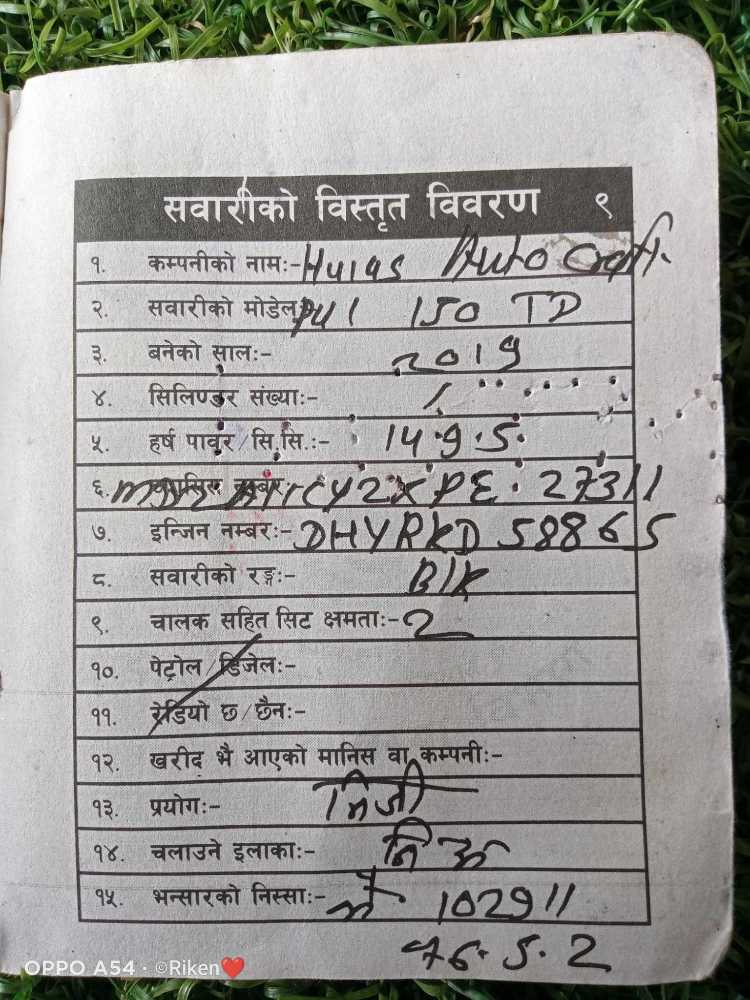 सवारीको विस्तृत विवरण ९
१. कम्पनीको नामः- Hulas Auto Craft.
२. सवारीको मोडेल Pul 150 TD
३. बनेको सालः- 2019
४. सिलिण्डर संख्याः- 1
५. हर्ष पावर/सि.सि.:- 149.5.
६. नम्बर 27311
७. इन्जिन नम्बरः- DHYRKD 58865
८. सवारीको रङ्गः- Blk
९. चालक सहित सिट क्षमताः- 2
१०. पेट्रोल/डिजेलः-
११. रेडियो छ/छैनः-
१२. खरीद भै आएको मानिस वा कम्पनीः-
१३. प्रयोगः- निजी
१४. चलाउने इलाकाः-
१५. भन्सारको निस्साः- 102911
76.5.2
OPPO A54 · ©Riken❤️